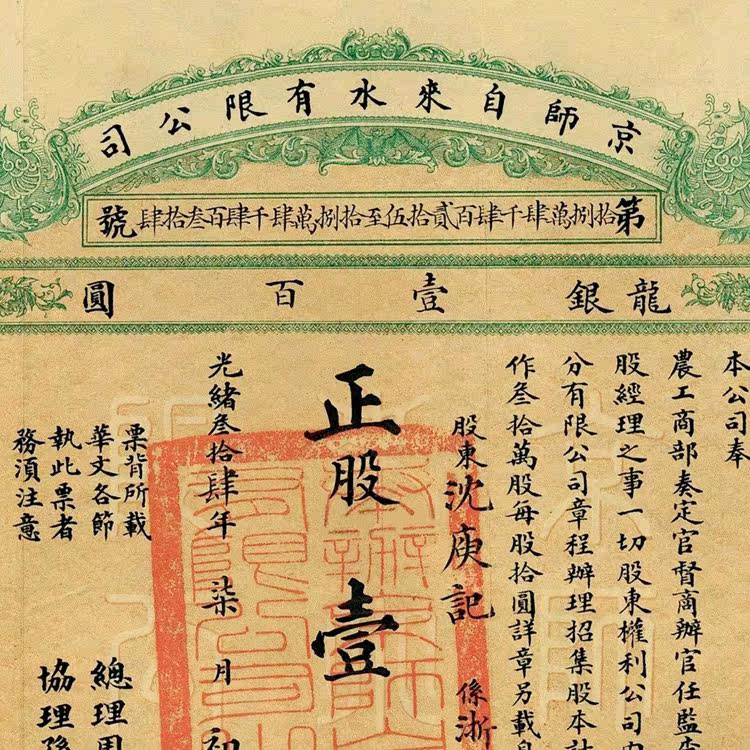 京師自來水有限公司
第拾捌萬肆千肆百貳拾伍至拾捌萬肆千肆百叁拾肆號
龍銀壹百圓
本公司奉
農工商部奏定官督商辦官任監
股經理之事一切股東權利公司
分有限公司章程辦理招集股本
作叁拾萬股每股拾圓詳章另載
股東沈庚記
係浙
正股壹
光緒叁拾肆年柒月初
票背所載
華文各節
執此票者
務須注意
總理周
協理孫